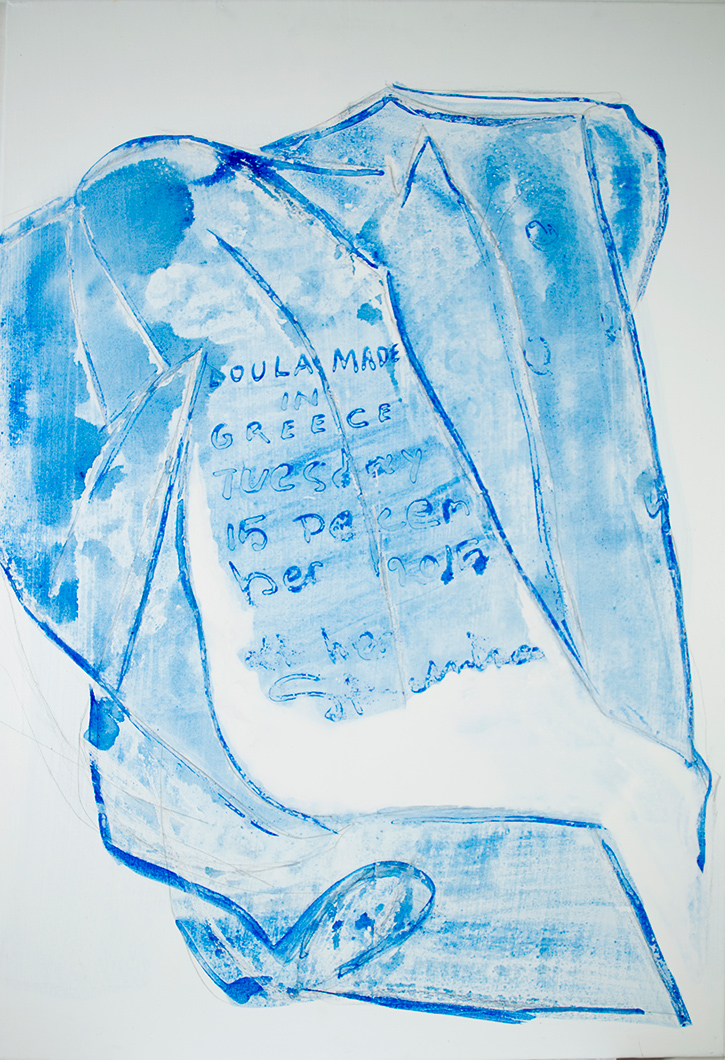 LOULA MADE
IN
GREECE
TUESday
15 DeCem
ber 2015
at her